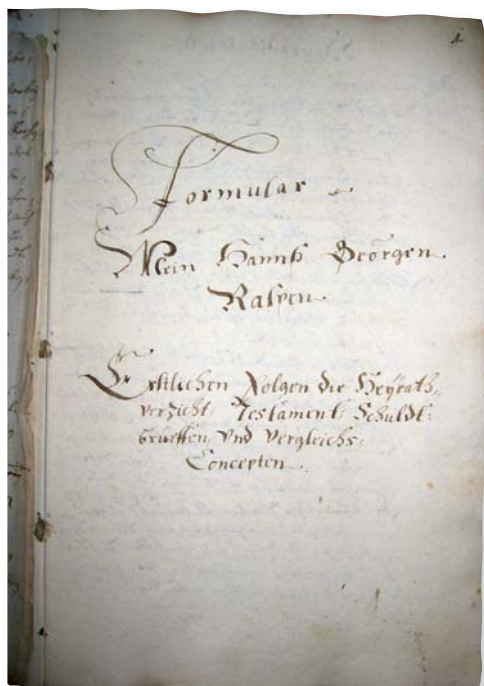 1
Formular
Mein Hannß Georgen
Erstlichen Volgen die Heÿrath-
verzicht: Testament: Schuldt:
brüeffen, vnd Vergleichs:
Concepten.